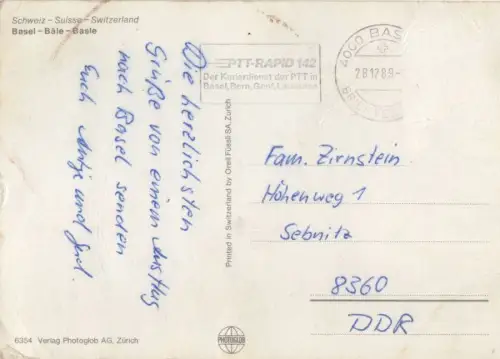 Schweiz – Suisse – Switzerland
Basel – Bâle – Basle
PTT-RAPID 142
Der Kurierdienst der PTT in
Basel, Bern, Genf, Lausanne
4000 BASEL
28.12.89-
Die herzlichsten
Grüße von einem Ausflug
nach Basel senden
Euch Antje und
Printed in Switzerland by Orell Füssli SA, Zürich
Fam. Zirnstein
Höhenweg 1
Sebnitz
8360
DDR
6354 Verlag Photoglob AG, Zürich
PHOTOGLOB